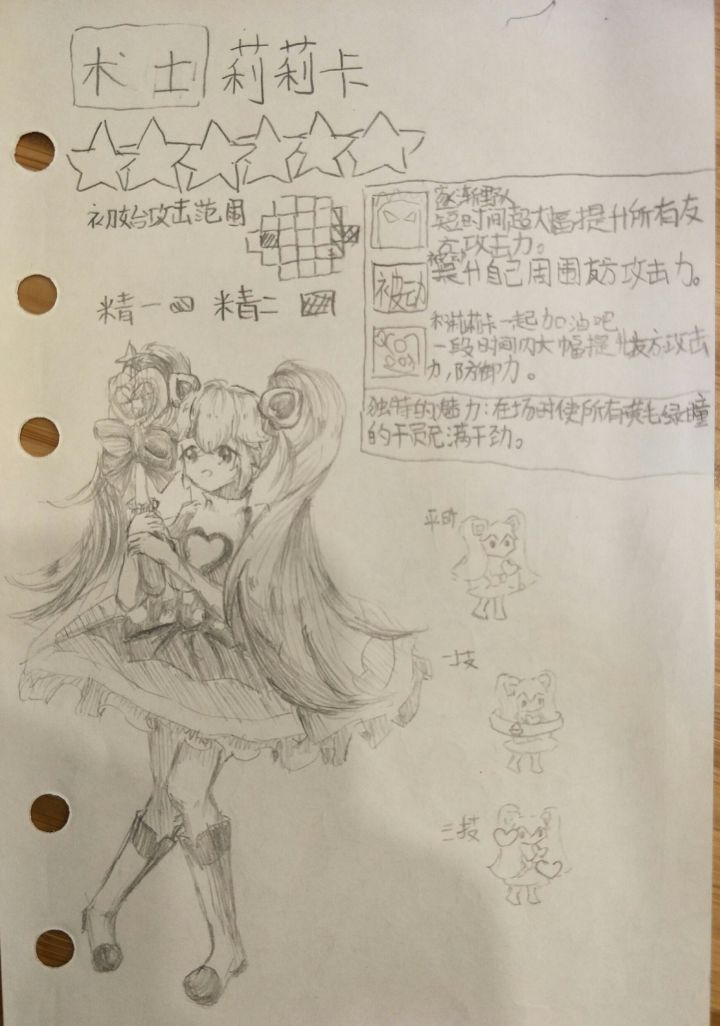 术士 莉莉卡
初始攻击范围
精一 精二
逐渐野
短时间超大幅提升所有友
方攻击力。
被动
提升自己周围友方攻击力。
和莉莉卡一起加油吧
一段时间内大幅提升友方攻击
力,防御力。
独特的魅力:在场时使所有黄毛绿瞳
的干员充满干劲。
平时
一技
三技